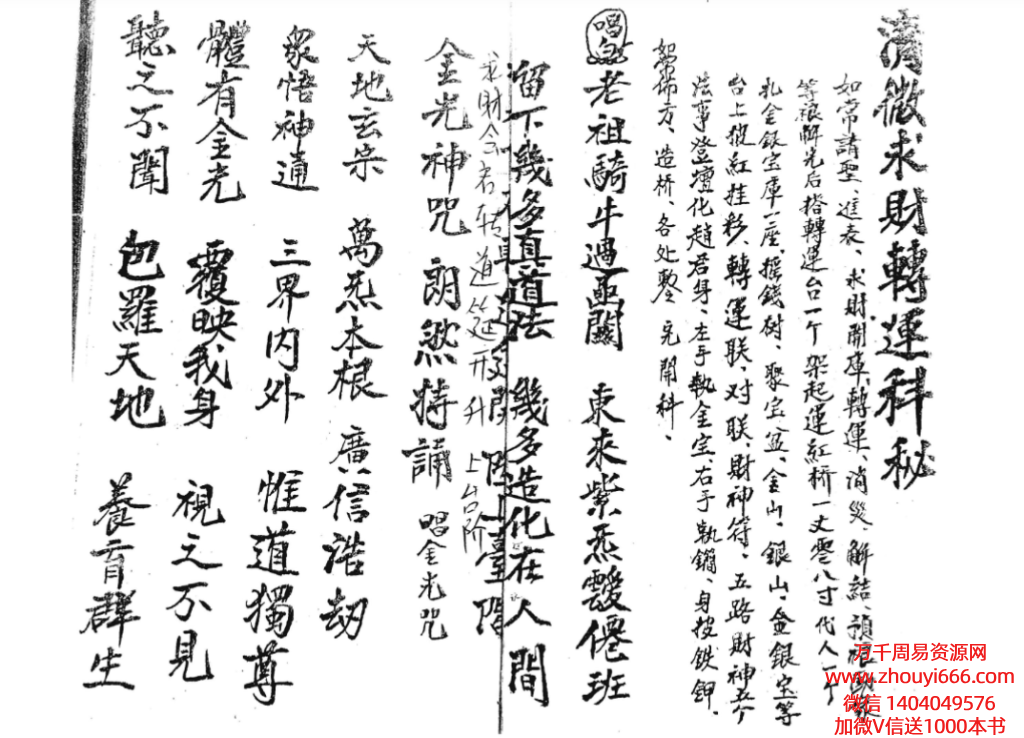 清微求財轉運科秘
如常請聖、進表、求財開庫、轉運、消災、解結、
等 解完后搭轉運台一个架起運紅桥一丈零八寸代人一个
扎金銀宝庫一座、摇錢树、聚宝盆、金山、銀山、金銀宝等
台上披紅挂彩、轉運联、对联、財神符、五路財神五个
法事登壇化趙君身、左手執金宝、右手執鐧、身披鉄钾、
如常佈方、造桥、各处、完開科、
唱
老祖騎牛過 關 東來紫炁靉僊班
留下幾多真道法 幾多造化在人間
求財
上台阶
金光神咒 朗然持誦 唱金光咒
天地玄宗 萬炁本根 廣信浩劫
眾悟神通 三界内外 惟道獨尊
體有金光 覆映我身 視之不見
聽之不聞 包羅天地 養育群生
万千周易资源网
www.zhouyi666.com
微信 1404049576
加微V信送1000本书